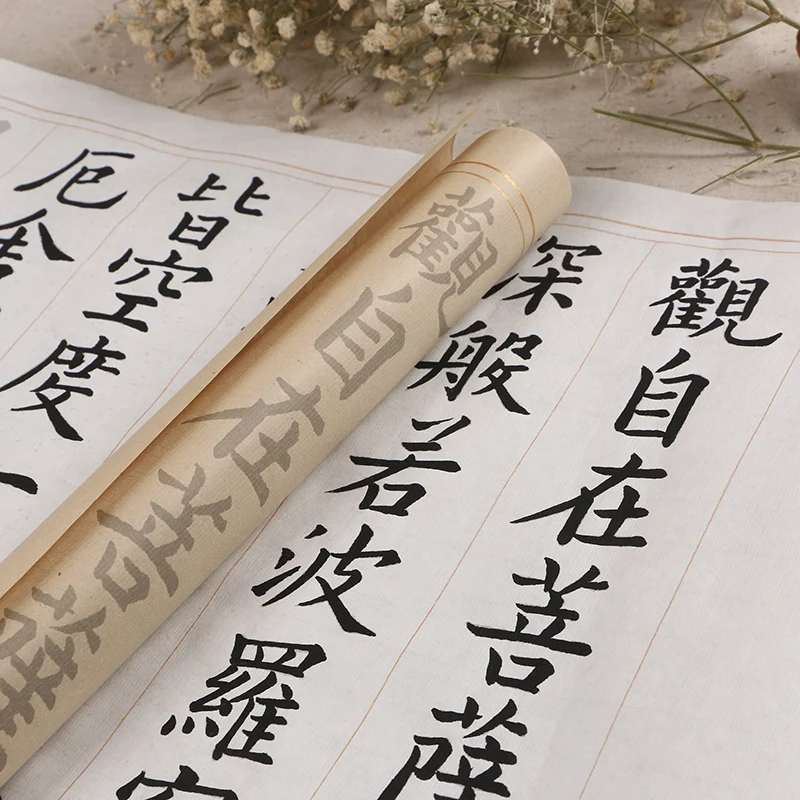 觀自在菩薩
深般若波羅
觀自在菩薩
皆空度一
厄舍